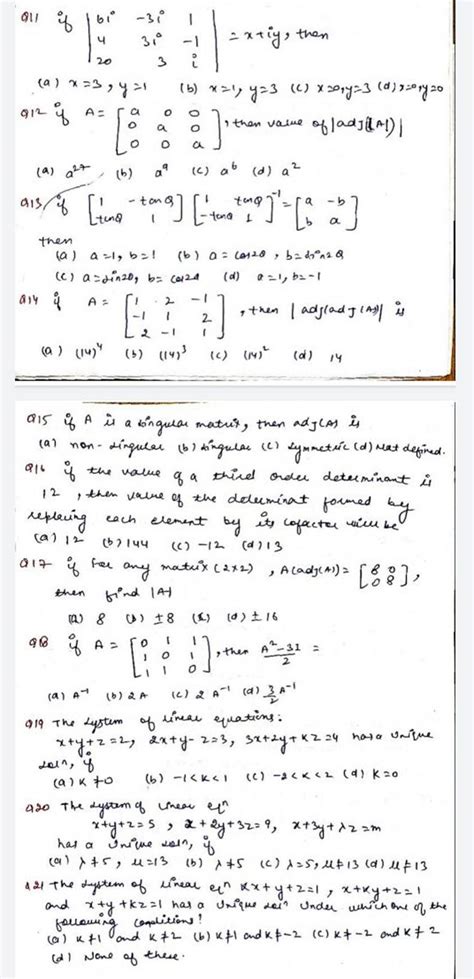 Q11 if | 6i -3i 1 | = x+iy, then
| 4 3i -1 |
| 20 3 i |
(a) x=3, y=1 (b) x=1, y=3 (c) x=0, y=3 (d) x=0, y=0
Q12 if A = [ a 0 0 ], then value of |adj(A)|
[ 0 a 0 ]
[ 0 0 a ]
(a) a^27 (b) a^9 (c) a^6 (d) a^2
Q13 if [ 1 -tanθ ] [ 1 tanθ ]^-1 = [ a -b ]
[ tanθ 1 ] [ -tanθ 1 ] [ b a ]
then
(a) a=1, b=1 (b) a = cos2θ, b = sin2θ
(c) a = sin2θ, b = cos2θ (d) a=1, b=-1
Q14 if A = [ 1 2 -1 ], then |adj(adj(A))| is
[ -1 1 2 ]
[ 2 -1 1 ]
(a) (14)^4 (b) (14)^3 (c) (14)^2 (d) 14
Q15 if A is a singular matrix, then adj(A) is
(a) non-singular (b) singular (c) symmetric (d) Not defined.
Q16 if the value of a third order determinant is
12, then value of the determinat formed by
replacing each element by its cofactor will be
(a) 12 (b) 144 (c) -12 (d) 13
Q17 if for any matrix (2×2), A(adj(A)) = [ 8 0 ],
[ 0 8 ]
then find |A|
(a) 8 (b) ±8 (d) ±16
Q18 if A = [ 0 1 1 ], then A^2-3I/2 =
[ 1 0 1 ]
[ 1 1 0 ]
(a) A^-1 (b) 2A (c) 2A^-1 (d) 3/2 A^-1
Q19 The system of linear equations:
x+y+z=2, 2x+y-z=3, 3x+2y+kz=4 has a unique
soln, if
(a) k≠0 (b) -1<k<1 (c) -2<k<2 (d) k=0
Q20 The system of linear eqn
x+y+z=5, x+2y+3z=9, x+3y+λz=m
has a unique soln, if
(a) λ≠5, μ=13 (b) λ≠5 (c) λ=5, μ≠13 (d) μ≠13
Q21 The system of linear eqn kx+y+z=1, x+ky+z=1
and x+y+kz=1 has a unique soln under which one of the
following conditions?
(a) k≠1 and k≠2 (b) k≠1 and k≠-2 (c) k≠-2 and k≠2
(d) None of these.